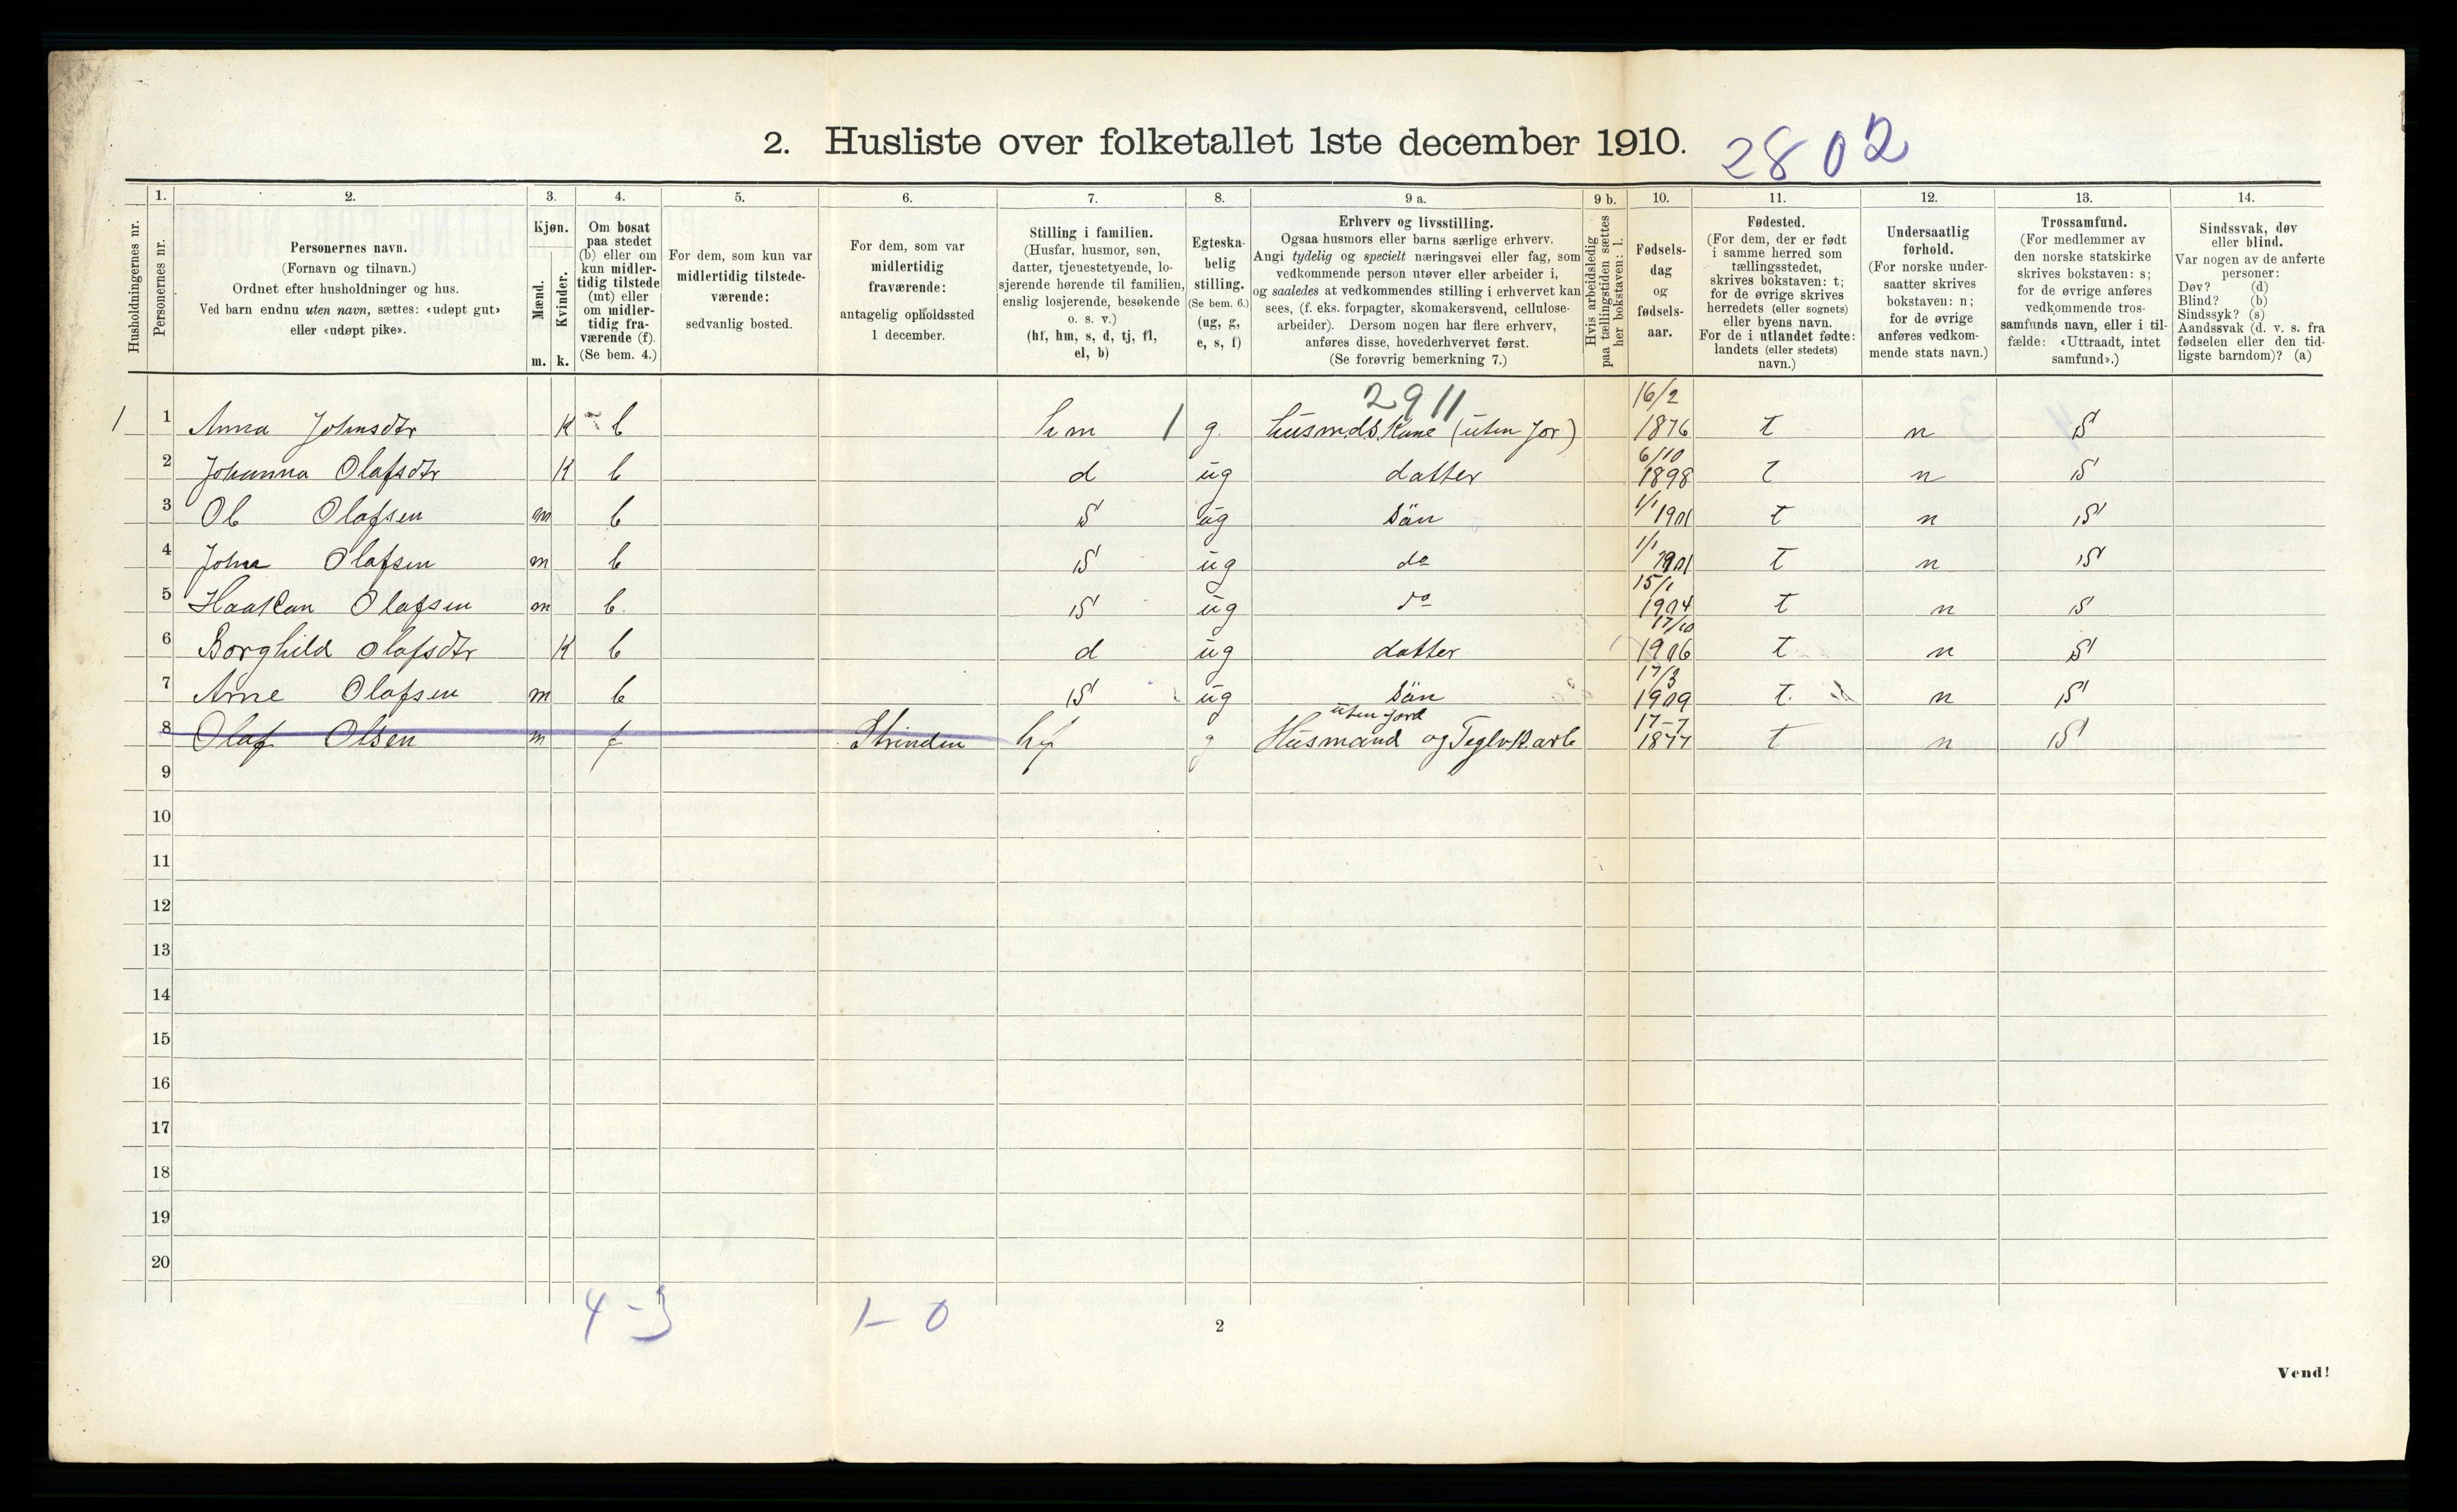 2. Husliste over folketallet 1ste december 1910.
2802
Husholdningernes nr.
1.
Personernes nr.
2.
Personernes navn.
(Fornavn og tilnavn.)
Ordnet efter husholdninger og hus.
Ved barn endnu uten navn, sættes: «udøpt gut»
eller «udøpt pike».
3.
Kjøn.
Mænd.
Kvinder.
m. k.
4.
Om bosat
paa stedet
(b) eller om
kun midler-
tidig tilstede
(mt) eller
om midler-
tidig fra-
værende (f).
(Se bem. 4.)
5.
For dem, som kun var
midlertidig tilstede-
værende:
sedvanlig bosted.
6.
For dem, som var
midlertidig
fraværende:
antagelig opholdssted
1 december.
7.
Stilling i familien.
(Husfar, husmor, søn,
datter, tjenestetyende, lo-
sjerende hørende til familien,
enslig losjerende, besøkende
o. s. v.)
(hf, hm, s, d, tj, fl,
el, b)
8.
Egteska-
belig
stilling.
(Se bem. 6.)
(ug, g,
e, s, f)
9 a.
Erhverv og livsstilling.
Ogsaa husmors eller barns særlige erhverv.
Angi tydelig og specielt næringsvei eller fag, som
vedkommende person utøver eller arbeider i,
og saaledes at vedkommendes stilling i erhvervet kan
sees, (f. eks. forpagter, skomakersvend, cellulose-
arbeider). Dersom nogen har flere erhverv,
anføres disse, hovederhvervet først.
(Se forøvrig bemerkning 7.)
9 b.
Hvis arbeidsledig
paa tællingstiden sættes
her bokstaven: l.
10.
Fødsels-
dag
og
fødsels-
aar.
11.
Fødested.
(For dem, der er født
i samme herred som
tællingsstedet,
skrives bokstaven: t;
for de øvrige skrives
herredets (eller sognets)
eller byens navn.
For de i utlandet fødte:
landets (eller stedets)
navn.)
12.
Undersaatlig
forhold.
(For norske under-
saatter skrives
bokstaven: n;
for de øvrige
anføres vedkom-
mende stats navn.)
13.
Trossamfund.
(For medlemmer av
den norske statskirke
skrives bokstaven: s;
for de øvrige anføres
vedkommende tros-
samfunds navn, eller i til-
fælde: «Uttraadt, intet
samfund».)
14.
Sindssvak, døv
eller blind.
Var nogen av de anførte
personer:
Døv? (d)
Blind? (b)
Sindssyk? (s)
Aandssvak (d. v. s. fra
fødselen eller den tid-
ligste barndom)? (a)
2911
1 1 Anna Johnsdtr K b hm 1 g. husmds.Kone (uten Jor) 16/2 1876 t n S
2 Johanna Olafsdtr K b d ug datter 6/10 1898 t n S
3 Ol Olafsen m b S ug Sön 1/1 1901 t n S
4 John Olafsen m b S ug do 1/1 1901 t n S
5 Haakan Olafsen m b. S ug do 15/1 1904 t n S
6 Borghild Olafsdtr K b d ug datter 17/10 1906 t n S
7 Arne Olafsen m b S ug Sön 17/3 1909 t. n S
8 Olaf Olsen m f Strinden hf g Husmand uten jord og Teglvk.arb 17-7 1877 t n S
9
10
11
12
13
14
15
16
17
18
19
20
4-3 1-0
2
Vend!